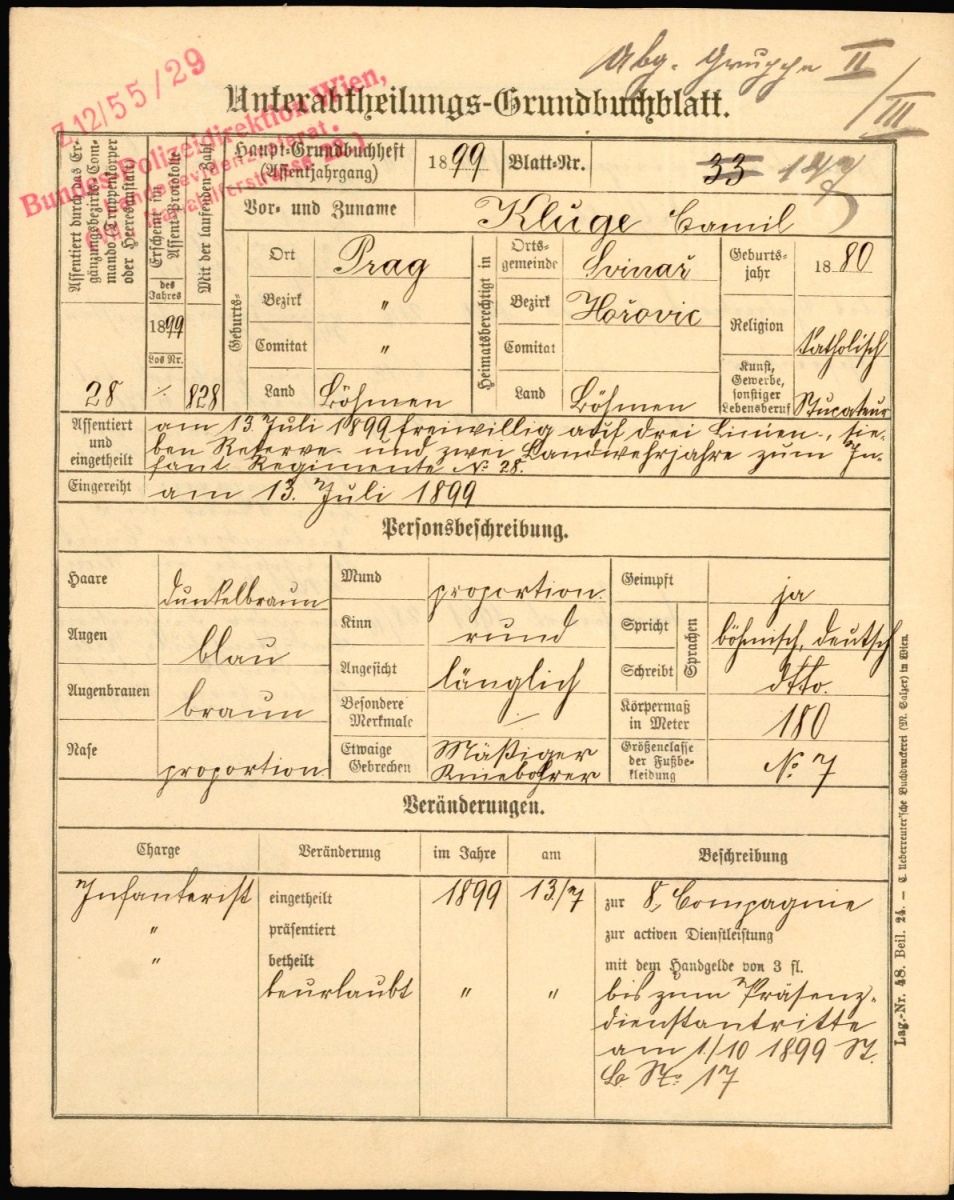 Abg. Gruppe II / III
Z.12/55/29
Unterabtheilungs-Grundbuchblatt.
Bundes-Polizeidirektion Wien,
Assentiert durch das Er-
gänzungsbezirks-Com-
mando (Truppenkörper
oder Heeresanstalt)
28
Erscheint im
Assent-Protokolle
des
Jahres
1899
Los Nr.
⁒
Mit der laufenden Zahl
828
Haupt-Grundbuchheft
(Assentjahrgang)
1899
Blatt-Nr.
33
Vor- und Zuname
Kluge Camil
Geburts-
Ort
Prag
Bezirk
"
Comitat
"
Land
Böhmen
Heimatsberechtigt in
Orts-
gemeinde
Svinař
Bezirk
Hořovic
Comitat
Land
Böhmen
Geburts-
jahr
1880
Religion
katholisch
Kunst,
Gewerbe,
sonstiger
Lebensberuf
Stucateur
Assentiert
und
eingetheilt
am 13. Juli 1899 freiwillig auf drei Linien-, sie-
ben Reserve- und zwei Landwehrjahre zum In-
fant. Regimente No 28.
Eingereiht
am 13. Juli 1899
Personsbeschreibung.
Haare
dunkelbraun
Augen
blau
Augenbrauen
braun
Nase
proportion
Mund
proportion.
Kinn
rund
Angesicht
länglich
Besondere
Merkmale
⁒
Etwaige
Gebrechen
Mäßiger
Kniebohrer
Geimpft
ja
Spricht
Sprachen
böhmisch, deutsch
Schreibt
dtto.
Körpermaß
in Meter
180
Größenclasse
der Fußbe-
kleidung
No 7
Veränderungen.
Charge
Veränderung
im Jahre
am
Beschreibung
Infanterist
eingetheilt
1899
13/7
zur 8. Compagnie
"
präsentiert
zur activen Dienstleistung
"
betheilt
mit dem Handgelde von 3 fl.
beurlaubt
"
"
bis zum Präsenz-
dienstantritte
am 1/10 1899 St.
B. No 17
Lag.-Nr. 48. Beil. 24. — C. Ueberreuter'sche Buchdruckerei (M. Salzer) in Wien.